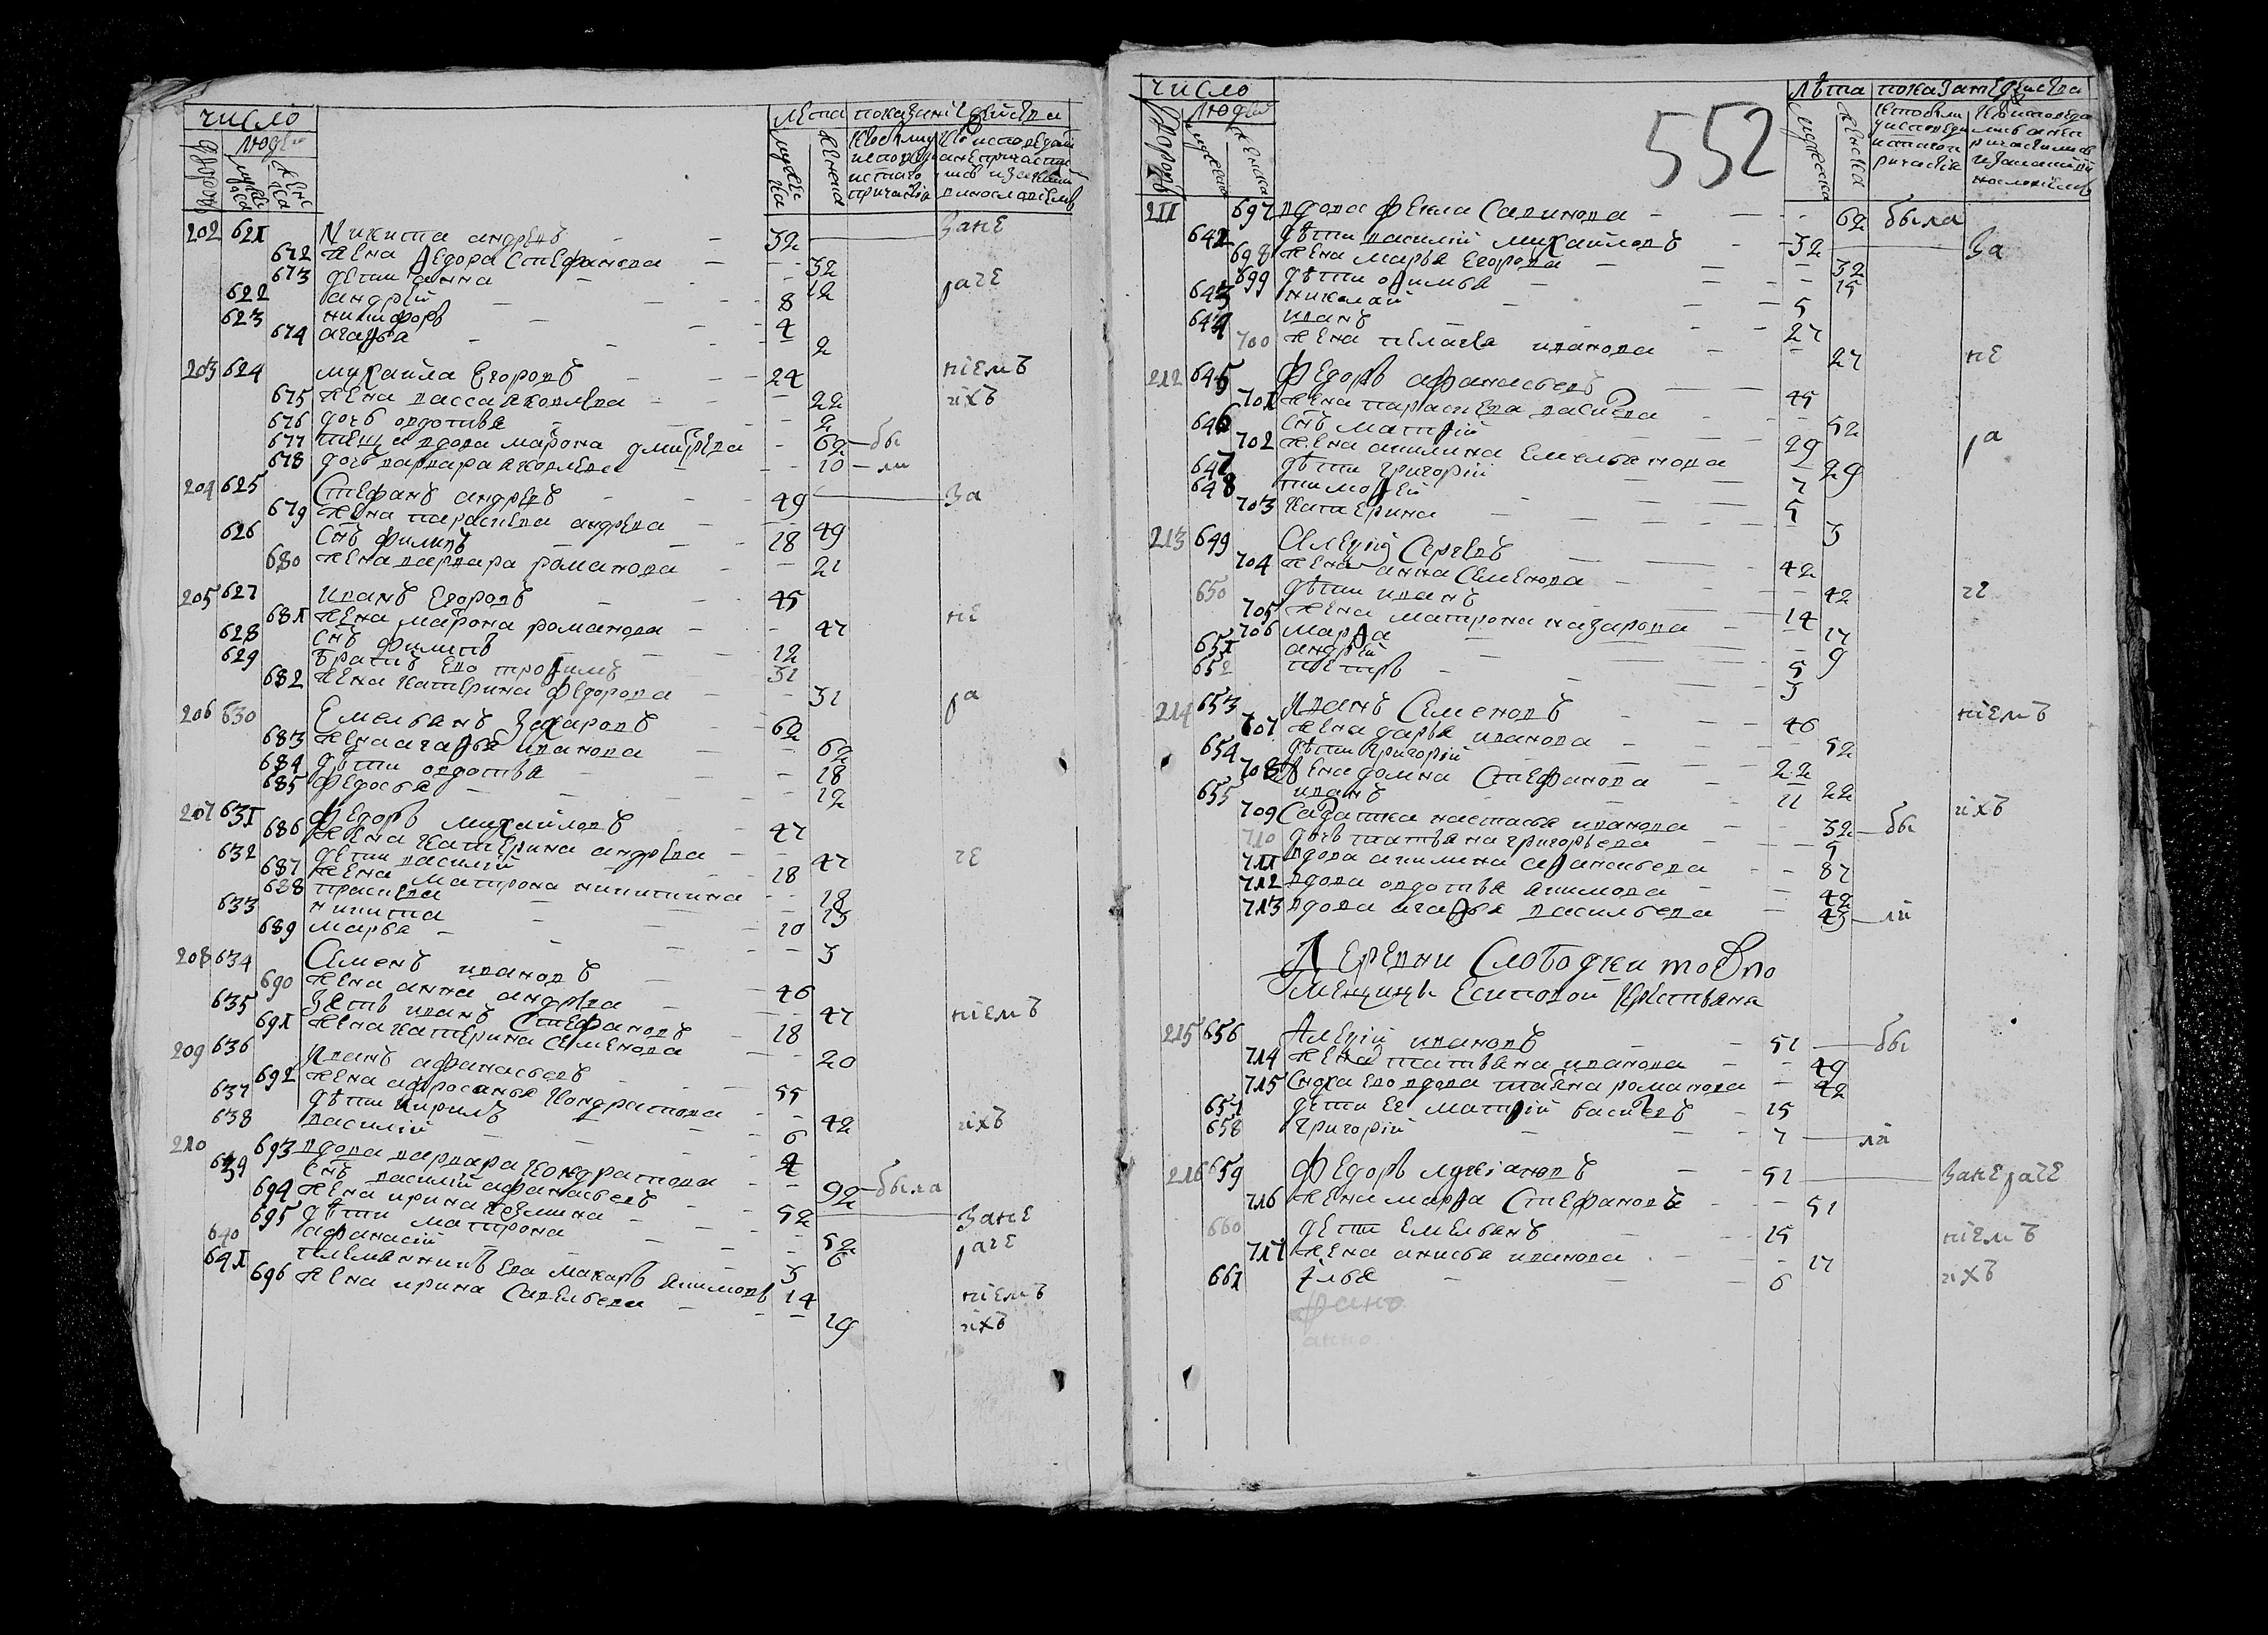 число
людей
лета показание действа
202 621 Никита андреевъ 32 Зане
672 жена Ѳедора Стефанова 32
673 дети анна 12
622 андрей 8 раче
623 никифоръ 4
674 агаѳья 2
203 624 михайла Егоровъ 24 ніемъ
675 жена васса яковлева 22 ихъ
676 дочь овдотья 2
677 теща вдова мавра дмитрева 62 бы
678 дочь варвара яковлева 10 ли
204 625 Стефанъ андреевъ 49 За
679 жена параскева андрева 49
626 снъ филипъ 18
680 жена варвара романова 21
205 627 иванъ Егоровъ 45
681 жена матрона романова 47 не
628 снъ филипъ 12
629 братъ Его трофимъ 31
682 жена катерина федорова 31
206 630 Емельянъ Захаровъ 62 ра
683 жена агаѳья иванова 62
684 дети овдотья 18
685 федосья 12
207 631 федоръ михайловъ 47
686 жена катерина андрева 47
632 дети василий 18 че
687 жена матрона никитина 18
688 праскева 15
633 никита 10
689 марья 3
208 634 Семенъ ивановъ 46
690 жена анна андрева 47
635 Зять иванъ Стефановъ 18 ніемъ
691 жена катерина семенова 20
209 636 Иванъ афанасьевъ 55
692 жена афросинья кондратова 42
637 дѣти кирилъ 6 ихъ
638 василій 4
210 693 вдова варвара кондратова 92 была
639 снъ василий афанасьевъ 52 Зане
694 жена ирина 52
695 дѣти матрона 6 раче
640 афанасій 3
641 племянникъ Ева макаръ якимовъ 14 ніемъ
696 жена ирина Савельева 19 ихъ
552
число
людей
лѣта показание действа
211 697 вдова фекла Савинова 62 была
642 дѣти василій михайловъ 32 За
698 жена марья Егорова 32
699 дѣти олимья 15
643 николай 5
644 иванъ 27
700 жена пелагея иванова 27 не
212 645 федоръ афанасьевъ 45
701 жена параскева васильева 52
646 снъ матѳій 29
702 жена акилина Емельянова 29 ра
647 дѣти григорій 7
648 тимоѳей 5
703 катерина 3
213 649 Алексій Сергеевъ 42
704 жена анна Семенова 42
650 дѣти иванъ 14 че
705 жена матрона назарова 17
706 марѳа 9
651 андрей 5
652 петръ 3
214 653 Иванъ Семеновъ 46 ніемъ
707 жена дарья иванова 52
654 дѣти григорій 22
708 жена домна Стефанова 22
655 иванъ 11
709 Салдатка настасья иванова 32 бы ихъ
710 дочь татьяна григорьева 5
711 вдова акилина афанасьева 87
712 вдова овдотья якимова 42
713 вдова агаѳья васильева 43 ли
Деревни Слободки тоЪ по
мещицы Есиповой крестьяна
215 656 Алексій ивановъ 51 бы
714 жена татьяна иванова 49
715 Сноха Его вдова татьяна романова 42
657 дети Ее матѳій васильевъ 15
658 григорій 7 ли
216 659 федоръ лукіановъ 51 Занераче
716 жена марѳа Стефанова 51
660 дети Емельянъ 15 ніемъ
717 жена анисья иванова 17
661 Илья 6 ихъ